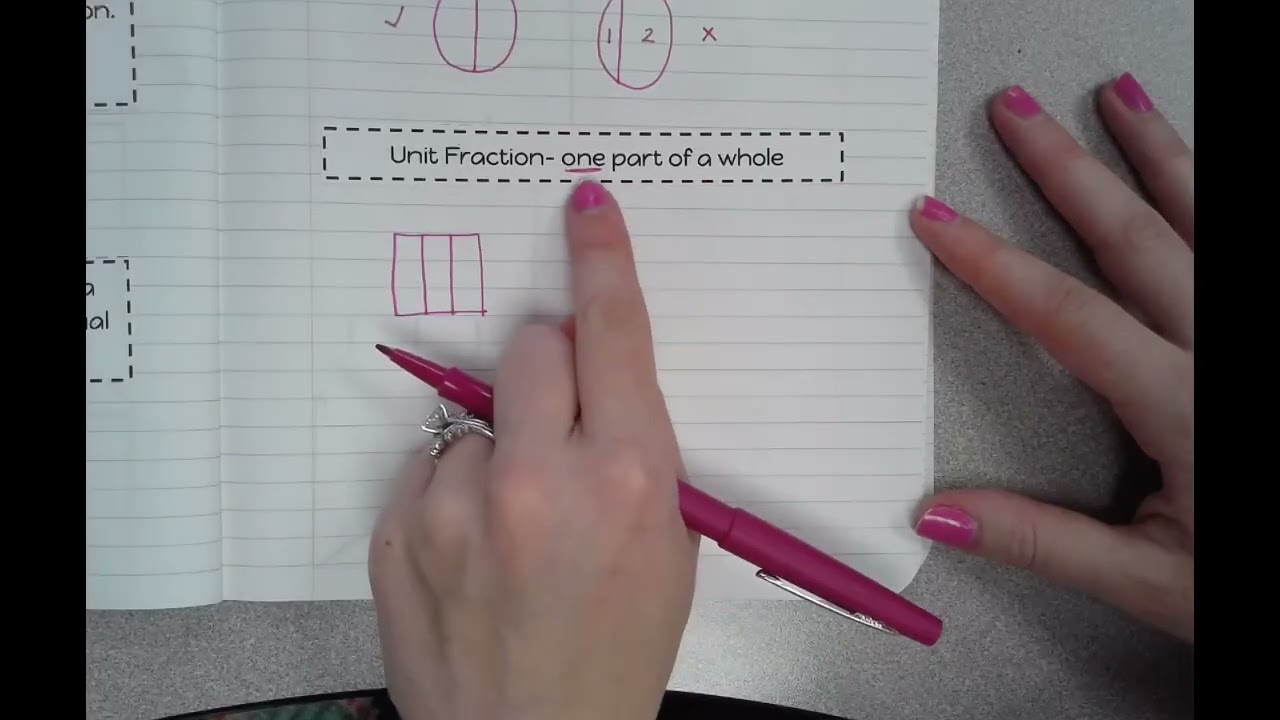 on.
1 2 x
Unit Fraction- one part of a whole
a
ual